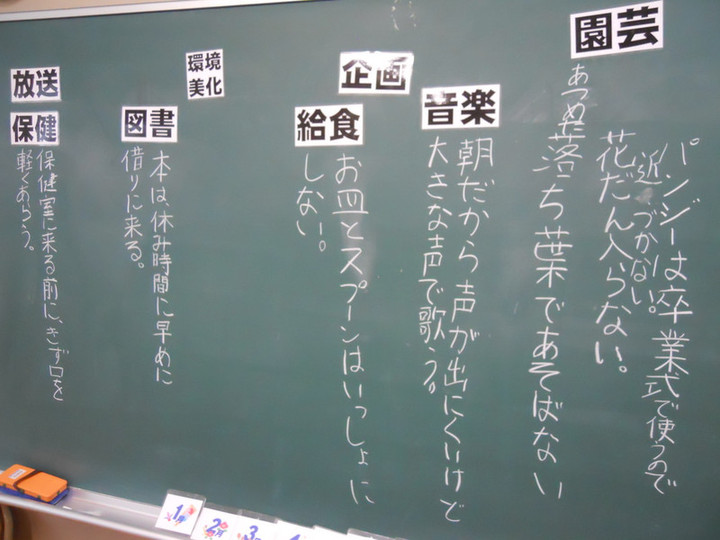 園芸
パンジーは卒業式で使うので
近づかない。
花だん入らない。
あつめた落ち葉であそばない
音楽
朝だから声が出にくいけど
大きな声で歌う。
企画
給食
お皿とスプーンはいっしょに
しない。
環境
美化
図書
本は、休み時間に早めに
借りに来る。
放送
保健
保健室に来る前に、きず口を
軽くあらう。
1月
2月
3月